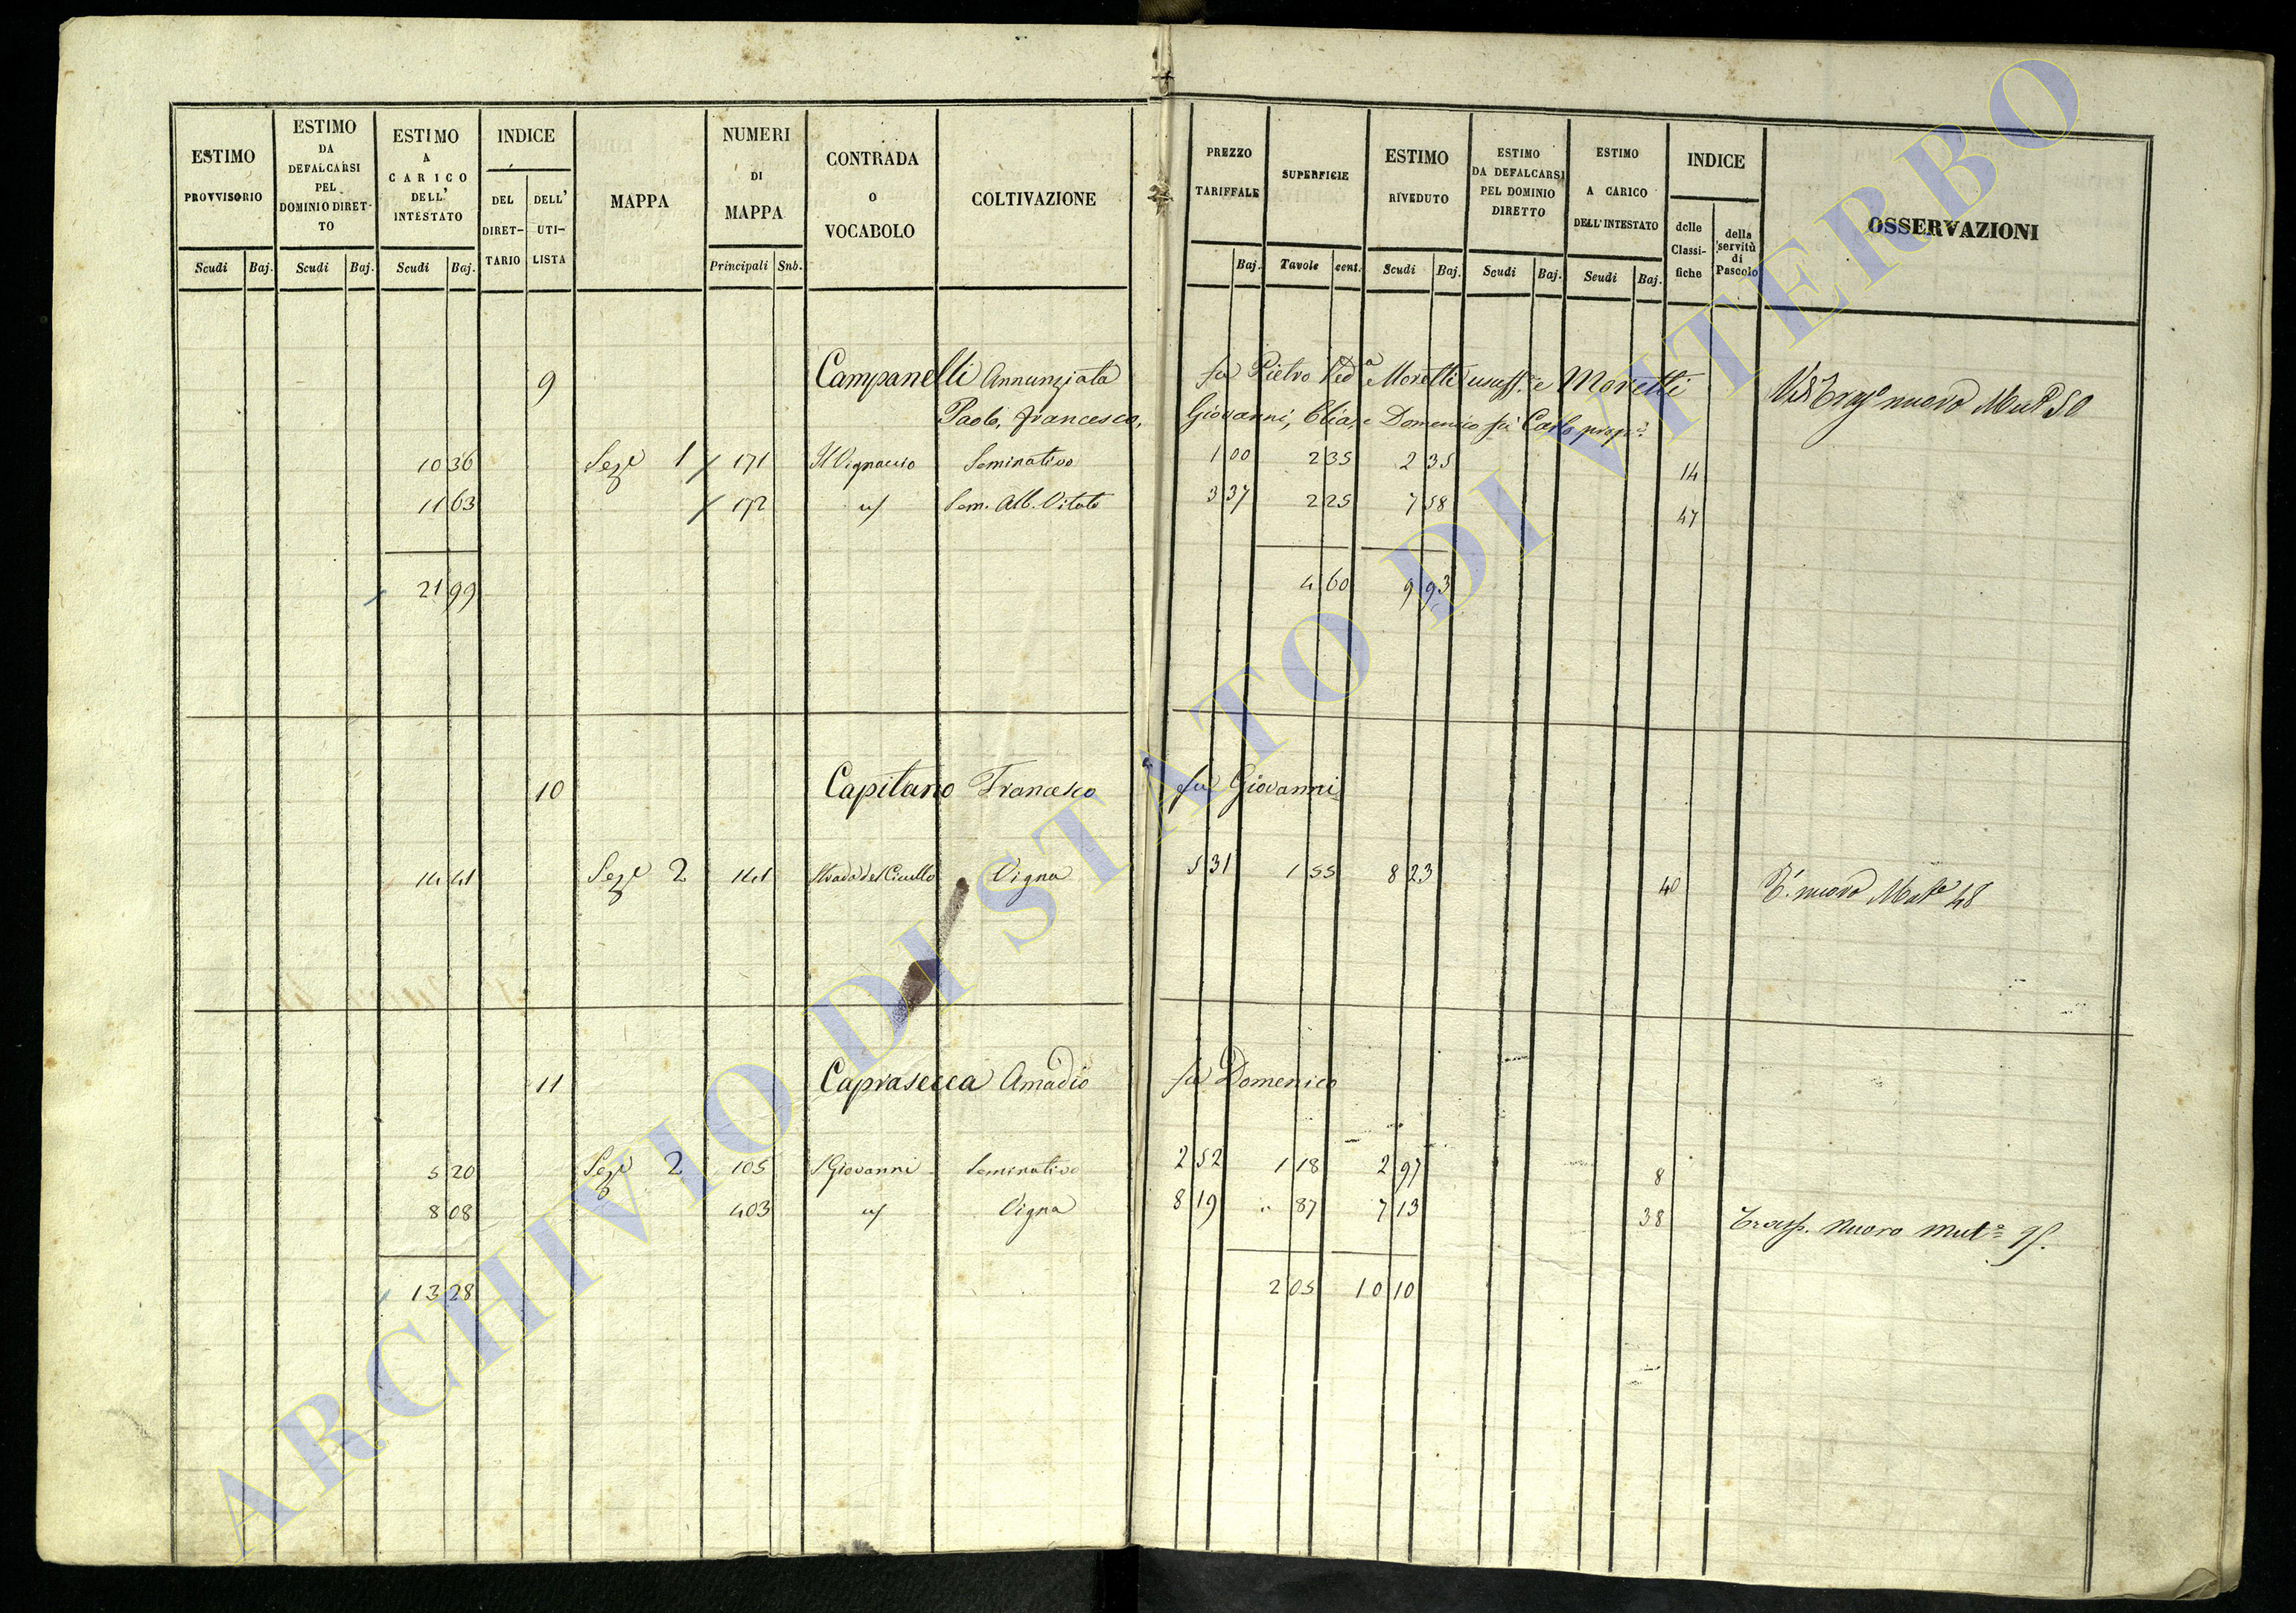 ESTIMO PROVVISORIO
ESTIMO DA DEFALCARSI PEL DOMINIO DIRETTO
ESTIMO A CARICO DELL' INTESTATO
INDICE
DEL DIRETTARIO
DELL' UTILISTA
MAPPA
NUMERI DI MAPPA
CONTRADA O VOCABOLO
COLTIVAZIONE
PREZZO TARIFFALE
SUPERFICIE
ESTIMO RIVEDUTO
ESTIMO DA DEFALCARSI PEL DOMINIO DIRETTO
ESTIMO A CARICO DELL'INTESTATO
INDICE
delle Classifiche
della servitù di Pascolo
OSSERVAZIONI
Scudi Baj. Scudi Baj. Scudi Baj. Principali Sub. Baj. Tavole cent. Scudi Baj. Scudi Baj. Scudi Baj.
9 Campanelli Annunziata fu Pietro Ved.a Moretti usuff.e Moretti
Paolo, Francesco, Giovanni, Elia, e Domenico fu Carlo prop.
nuovo 50
10 36 Seze 1 171 Il Vignaccio Seminativo 1 00 2 35 2 35 14
11 63 172 Sem. Alb. Vitato 3 37 2 25 7 58 47
21 99 4 60 9 93
10 Capitano Francesco fu Giovanni
14 41 Seze 2 141 Strada del Vigna 5 31 1 55 8 23 40 nuovo 48
11 Caprasecca Amadio fu Domenico
5 20 Seze 2 105 S Giovanni Seminativo 2 52 1 18 2 97 8
8 08 403 Vigna 8 19 " 87 7 13 38 Trasp. nuovo Mut.a
13 28 2 05 10 10
ARCHIVIO DI STATO DI VITERBO